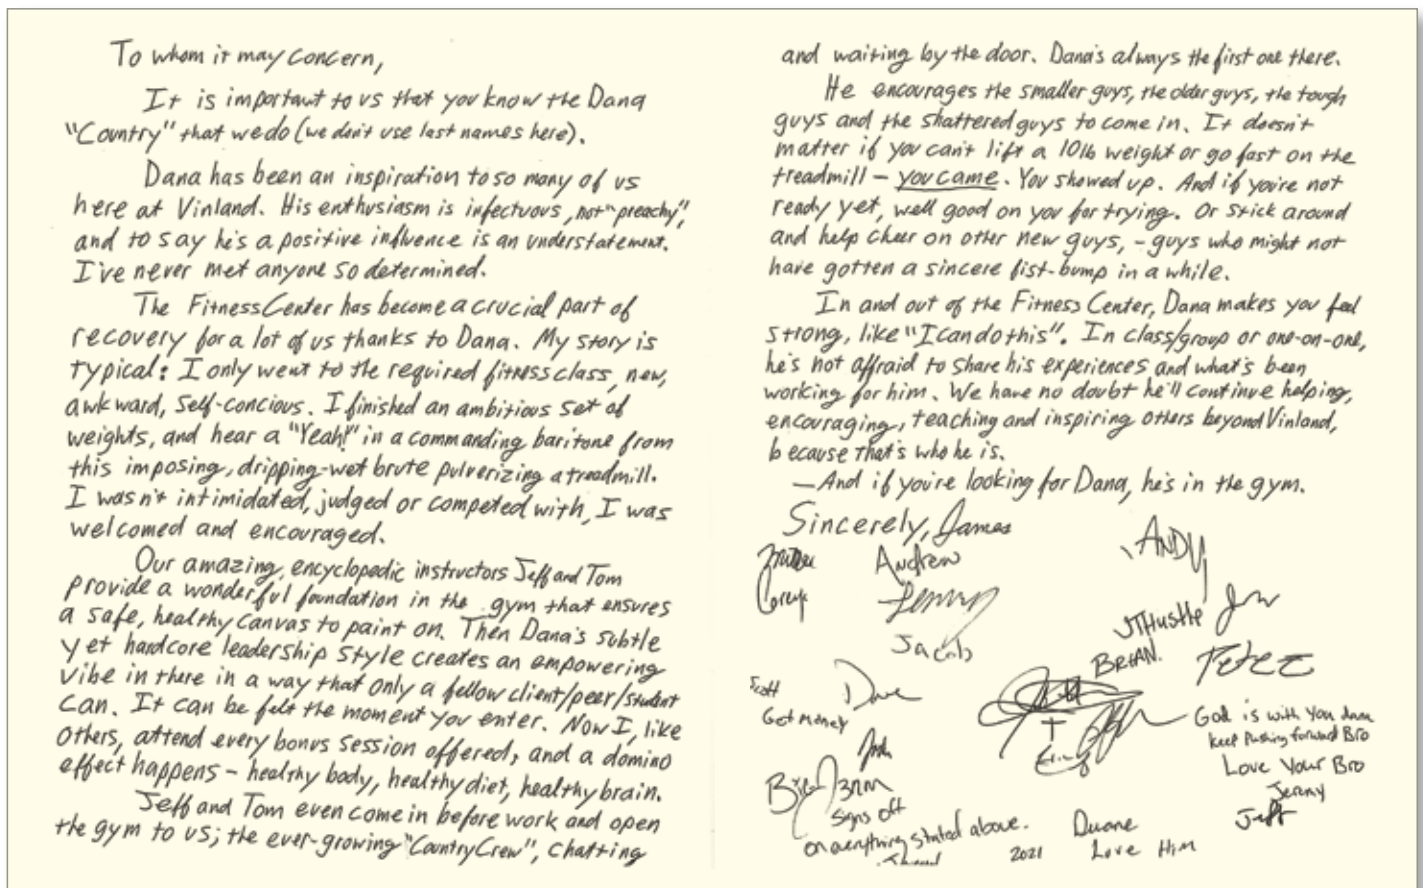 To whom it may concern,
It is important to us that you know the Dana
"Country" that we do (we don't use last names here).
Dana has been an inspiration to so many of us
here at Vinland. His enthusiasm is infectuous, not "preachy",
and to say he's a positive influence is an understatement.
I've never met anyone so determined.
The Fitness Center has become a crucial part of
recovery for a lot of us thanks to Dana. My story is
typical: I only went to the required fitness class, new,
awkward, self-concious. I finished an ambitious set of
weights, and hear a "Yeah!" in a commanding baritone from
this imposing, dripping-wet brute pulverizing a treadmill.
I wasn't intimidated, judged or competed with, I was
welcomed and encouraged.
Our amazing, encyclopedic instructors Jeff and Tom
provide a wonderful foundation in the gym that ensures
a safe, healthy canvas to paint on. Then Dana's subtle
yet hardcore leadership style creates an empowering
vibe in there in a way that only a fellow client/peer/student
can. It can be felt the moment you enter. Now I, like
others, attend every bonus session offered, and a domino
effect happens - healthy body, healthy diet, healthy brain.
Jeff and Tom even come in before work and open
the gym to us; the ever-growing "Country Crew", chatting
and waiting by the door. Dana's always the first one there.
He encourages the smaller guys, the older guys, the tough
guys and the shattered guys to come in. It doesn't
matter if you can't lift a 10lb weight or go fast on the
treadmill - you came. You showed up. And if you're not
ready yet, well good on you for trying. Or stick around
and help cheer on other new guys, - guys who might not
have gotten a sincere fist-bump in a while.
In and out of the Fitness Center, Dana makes you feel
strong, like "I can do this". In class/group or one-on-one,
he's not affraid to share his experiences and what's been
working for him. We have no doubt he'll continue helping,
encouraging, teaching and inspiring others beyond Vinland,
because that's who he is.
—And if you're looking for Dana, he's in the gym.
Sincerely, James
Andrew
ANDY
Corey
Jacob
JT Hustle
BRIAN.
Scott
Get money
Dave
Josh
God is with you dana
keep pushing forward Bro
Love Your Bro
Jeremy
Jeff
signs off
on everything stated above.
2021
Duane
Love Him